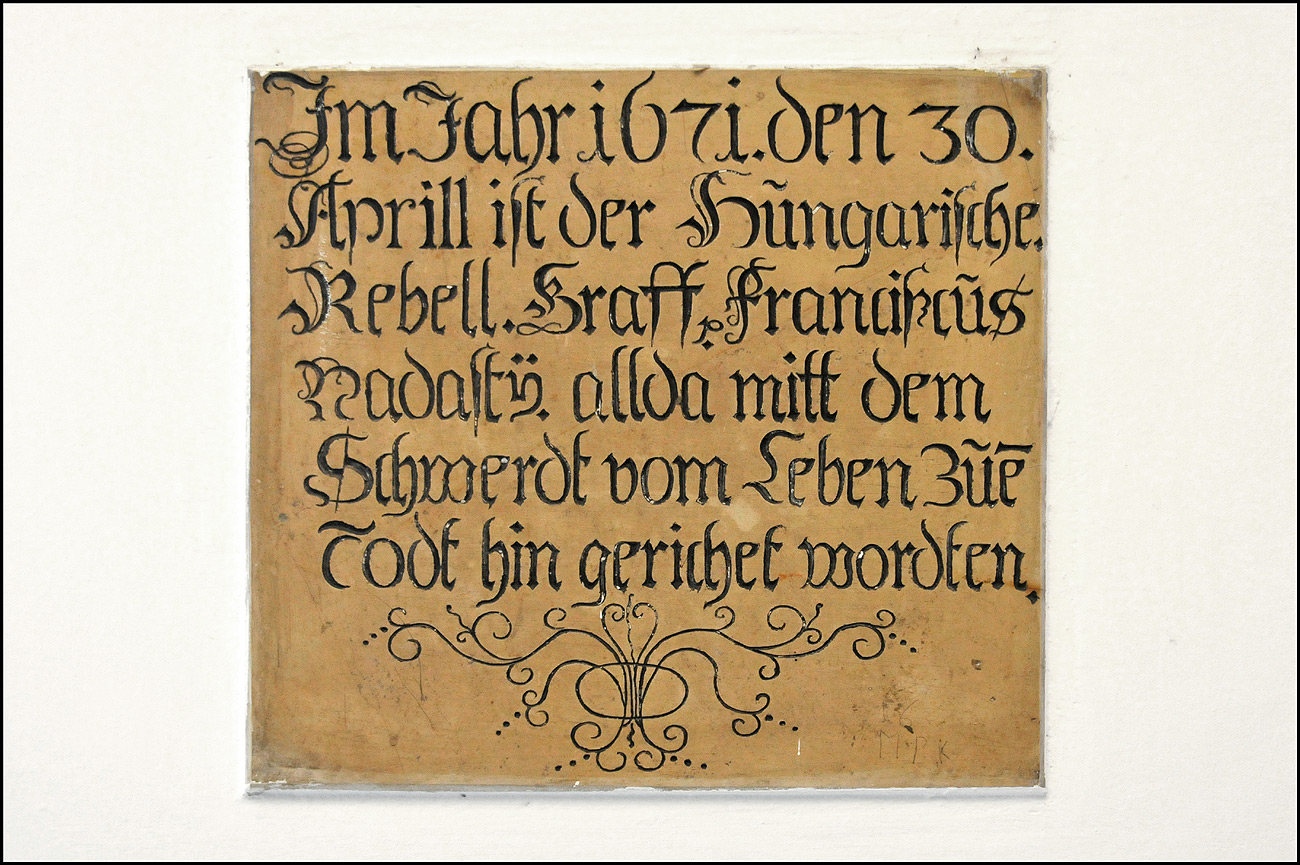 Im Jahr 1671. den 30.
Aprill ist der Hũngarische.
Rebell. Graff, Francißcũs
Nadastÿ. allda mitt dem
Schwerdt vom Leben Zũē
Todt hin gerichet wordten.
M P K